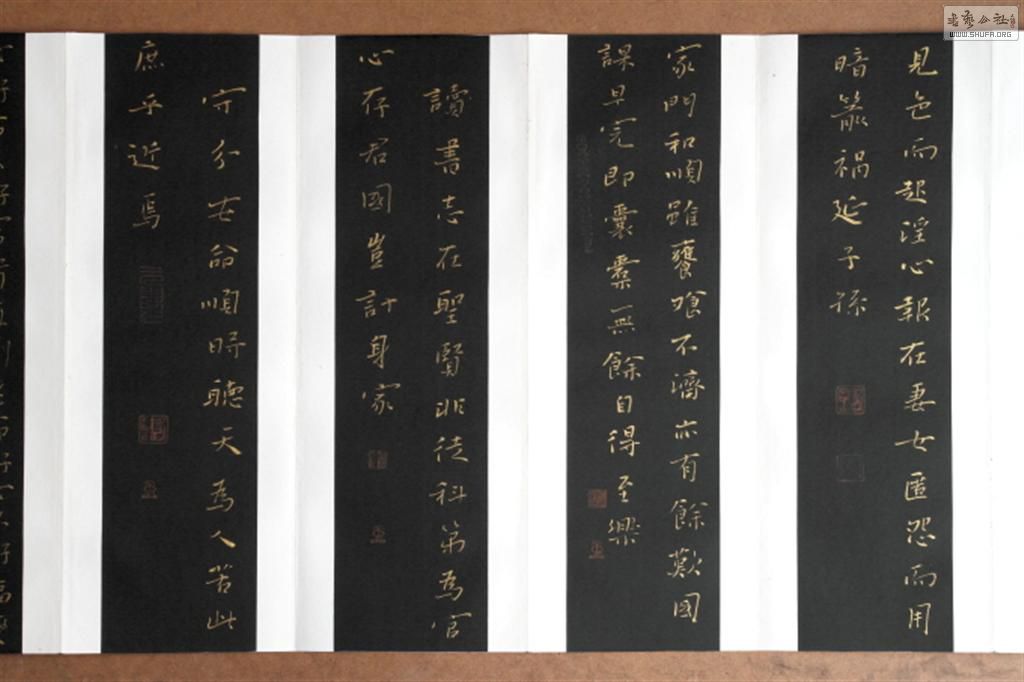 見色而起淫心報在妻女匿怨而用
暗箭禍延子孫
家門和順雖饔飧不濟亦有餘歡國
課早完即囊橐無餘自得至樂
讀書志在聖賢非徒科第為官
心存君國豈計身家
守分安命順時聽天為人若此
庶乎近焉
書藝公社
WWW.SHUFA.ORG